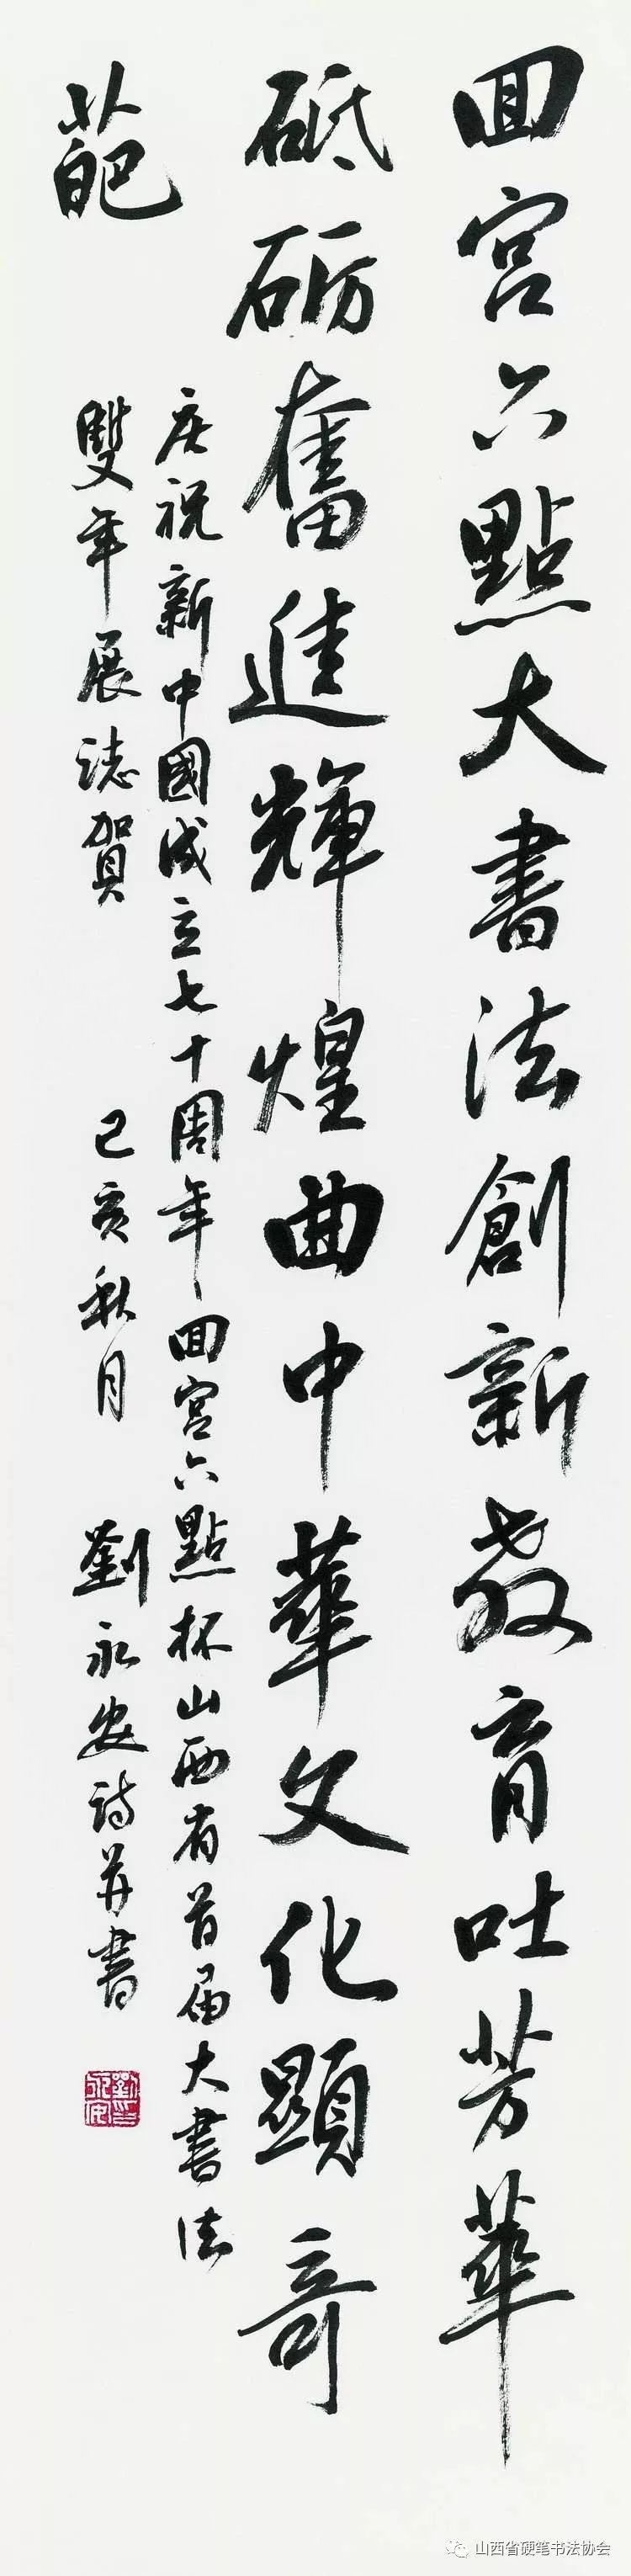 回宫六點大書法創新教育吐芳華
砥砺奮進輝煌曲中華文化顯奇
葩
庆祝新中國成立七十周年、回宫六點杯山西省首届大書法
雙年展誌賀
己亥秋月
劉永安詩并書
劉永安印
山西省硬笔书法协会